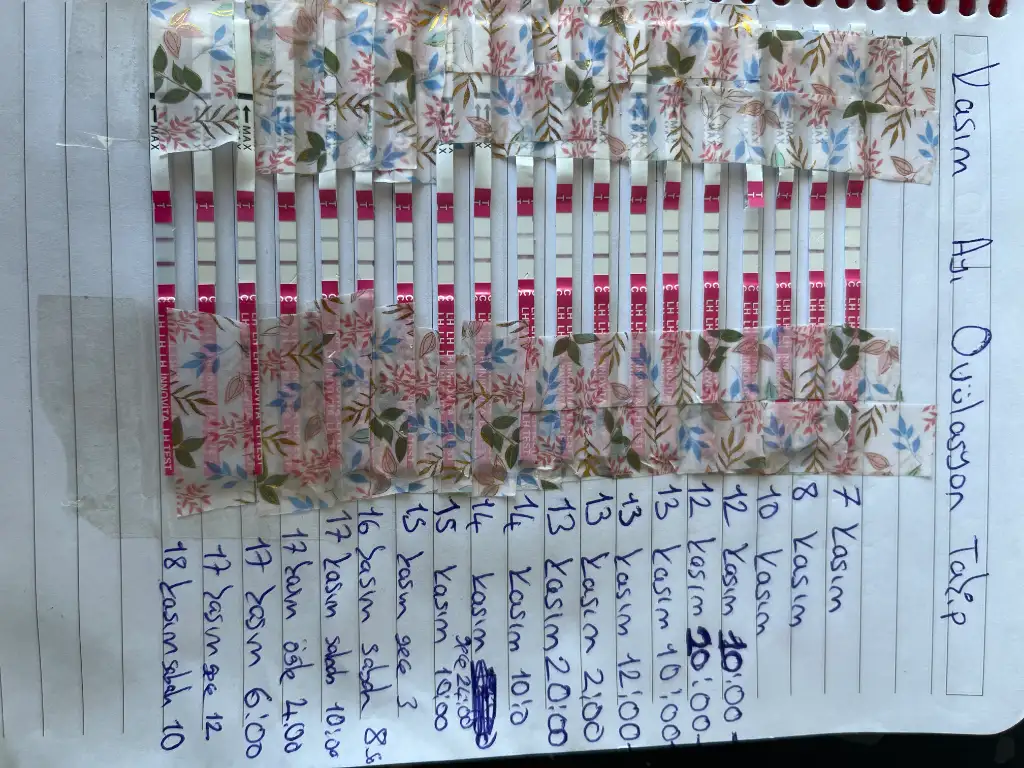 Kasım Ayı Ovülasyon Takip
7 Kasım
8 Kasım
10 Kasım
12 Kasım 10:00
12 Kasım 20:00
13 Kasım 10:00
13 Kasım 12:00
13 Kasım 2:00
13 Kasım 20:00
14 Kasım 10:0
14 Kasım gece 24:00
15 Kasım 10:00
15 Kasım gece 3
16 Kasım sabah
17 Kasım sabah 10:00
17 Kasım öğle 2.00
17 Kasım 6:00
17 Kasım gece 12
18 Kasım sabah 10
MAX
MAX